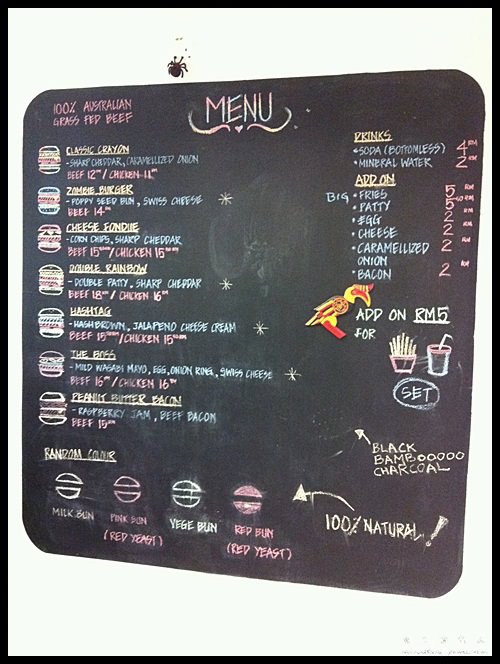 100% AUSTRALIAN
GRASS FED BEEF
MENU
CLASSIC CRAYON
-SHARP CHEDDAR, CARAMELLIZED ONION
BEEF 12 RM / CHICKEN 11 RM
ZOMBIE BURGER
-POPPY SEED BUN, SWISS CHEESE
BEEF 14 RM
CHEESE FONDUE
-CORN CHIPS, SHARP CHEDDAR
BEEF 15 / CHICKEN 15
DOUBLE RAINBOW
-DOUBLE PATTY, SHARP CHEDDAR
BEEF 18 RM / CHICKEN 16 RM
HASHTAG
-HASHBROWN, JALAPENO CHEESE CREAM
BEEF 15 / CHICKEN 15
THE BOSS
-MILD WASABI MAYO, EGG, ONION RING, SWISS CHEESE
BEEF 16 RM / CHICKEN 16 RM
PEANUT BUTTER BACON
-RASPBERRY JAM, BEEF BACON
BEEF 15 RM
RANDOM COLOUR
MILK BUN
PINK BUN
(RED YEAST)
VEGE BUN
RED BUN
(RED YEAST)
DRINKS
•SODA (BOTTOMLESS) 4 RM
•MINERAL WATER 2 RM
ADD ON
BIG •FRIES 5 RM
•PATTY 5 RM
•EGG 2 RM
•CHEESE 2 RM
•CARAMELLIZED 2 RM
ONION
•BACON 2 RM
ADD ON RM5
FOR
SET
BLACK
BAMBOOOOO
CHARCOAL
100% NATURAL!